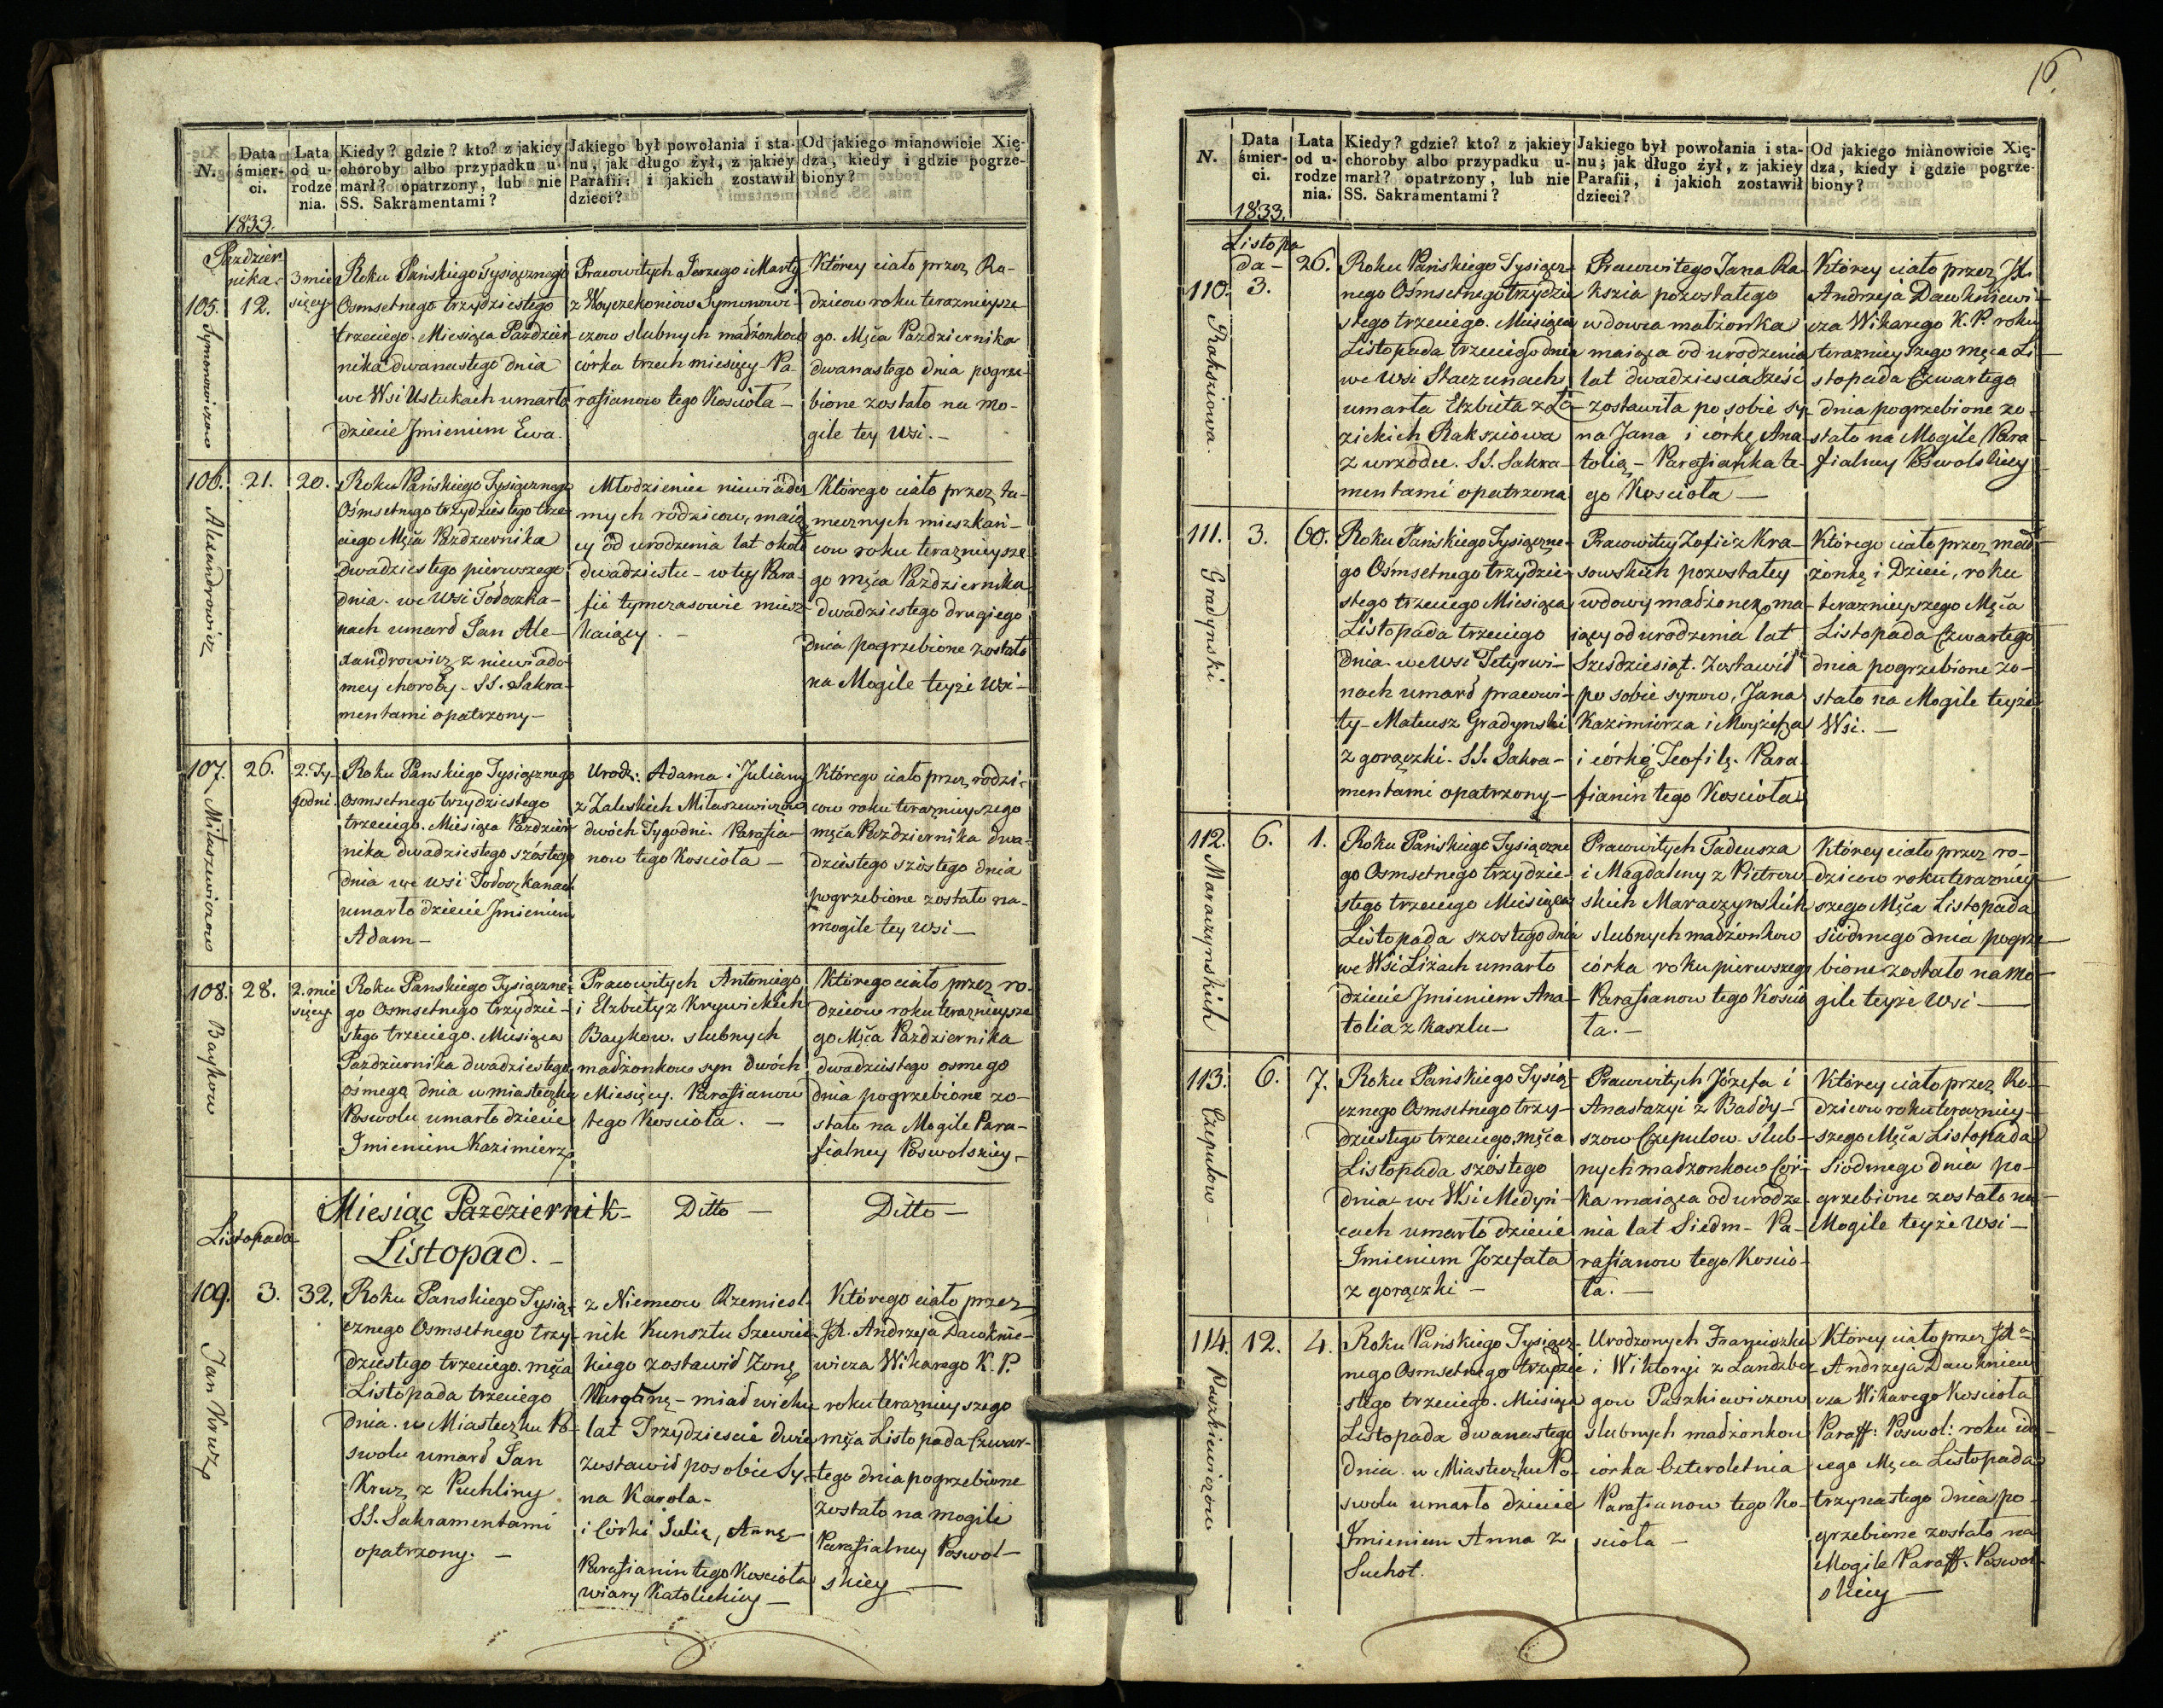 N.
Data śmierci.
Lata od urodzenia.
Kiedy? gdzie? kto? z jakiey
choroby albo przypadku u-
marł? opatrzony, lub nie
SS. Sakramentami?
Jakiego był powołania i sta-
nu, jak długo żył, z jakiey
Parafii; i jakich zostawił
dzieci?
Od jakiego mianowicie Xię-
dza, kiedy i gdzie pogrze-
biony?
1833.
Październ
nika.
105.
12.
3 mie
sięcy
Symonowiczow
Roku Pańskiego Tysiącznego
Osmsetnego trzydziestego
trzeciego. Miesiąca Paździer
nika dwanastego dnia
we Wsi Ustukach umarło
dziecie Jmieniem Ewa.
Pracowitych Jerzego i Marty
z Woyczekoniow Symonowi-
czow slubnych małżonkow
córka trzech miesięcy - Pa-
rafianow tego Kościoła -
Którey ciało przez Ro-
dzicow roku teraznieysze
go. Mśca Pazdziernika
dwanastego dnia pogrze-
bione zostało na mo-
gile tey wsi. -
106.
21.
20.
Alexandrowicz
Roku Pańskiego Tysiącznego
Ośmsetnego trzydziestego trze-
ciego Mśca Pazdziernika
dwadziestego pierwszego
dnia. we Wsi Todoczka-
nach umarł Jan Ale-
xandrowicz z niewiado-
mey choroby. SS. Sakra-
mentami opatrzony -
Młodzieniec niewiado
mych rodzicow, maią
cy od urodzenia lat około
dwadziestu - w tey Para-
fii tymczasowie miesz
kaiący. -
Którego ciało przez tu-
mecznych mieszkań-
cow roku teraznieysze
go mśca Pazdziernika
dwadziestego drugiego
dnia pogrzebione zostało
na Mogile teyże Wsi -
107.
26.
2. Ty-
godni
Mitaszewiczow
Roku Panskiego Tysiącznego
Osmsetnego trzydziestego
trzeciego. Miesiąca Paździer
nika dwadziestego szóstego
dnia we wsi Todoczkanach
umarło dziecie Jmieniem
Adam -
Urodz: Adama i Julianny
z Zaleskich Mitaszewiczow
dwóch Tygodni. Parafia-
now tego Kościoła -
Którego ciało przez rodzi-
cow roku teraznieyszego
mśca Pazdziernika dwa-
dziestego szóstego dnia
pogrzebione zostało na-
mogile tey wsi -
108.
28.
2. mie
sięcy
Baykow
Roku Panskiego Tysiączne-
go Osmsetnego trzydzie-
stego trzeciego. Miesiąca
Pazdziernika dwadziestego
ósmego dnia w miasteczku
Poswolu umarło dziecie
Jmieniem Kazimierz
Pracowitych Antoniego
i Elzbiety z Krywickich
Baykow. slubnych
małżonkow syn dwóch
Miesięcy. Parafianow
tego Kościoła. -
Którego ciało przez ro-
dzicow roku teraznieysze
go Mśca Pazdziernika
dwadziestego osmego
dnia pogrzebione zo-
stało na Mogile Para-
fialney Poswolskiey -
Miesiąc Pazdziernik - Ditto - Ditto -
Listopada
Listopad. -
109.
3.
32.
Jan Kruz
Roku Panskiego Tysią-
cznego Osmsetnego trzy-
dziestego trzeciego. mśca
Listopada trzeciego
dnia. w Miasteczku Po-
swolu umarł Jan
Kruz z Puchliny
SS. Sakramentami
opatrzony. -
z Niemcow Rzemiesl-
nik Kunsztu Szewie-
kiego zostawił Żonę
- miał wieku
lat Trzydzieście dwie
zostawił po sobie Sy-
na Karola -
i Córki Julię, Annę -
Parafianin tego Kościoła
wiary Katolickiey -
Którego ciało przez
JX. Andrzeja Dawknie-
wicza Wikarego K. P.
roku teraznieyszego
mśca Listopada Czwar-
tego dnia pogrzebione
zostało na mogile
Parafialney Poswol-
skiey -
16.
N.
Data śmierci.
Lata od urodzenia.
Kiedy? gdzie? kto? z jakiey
choroby albo przypadku u-
marł? opatrzony, lub nie
SS. Sakramentami?
Jakiego był powołania i sta-
nu; jak długo żył, z jakiey
Parafii, i jakich zostawił
dzieci?
Od jakiego mianowicie Xię-
dza, kiedy i gdzie pogrze-
biony?
1833.
Listopa
da -
110.
3.
26.
Raksziowa.
Roku Pańskiego Tysiącz-
nego Ośmsetnego trzydzie
stego trzeciego. Miesiąca
Listopada trzeciego dnia
we Wsi Staczunach
umarła Elzbieta z Ło-
zickich Raksziowa
z wrzodu. SS. Sakra-
mentami opatrzona
Pracowitego Jana Ra-
kszia pozostałego
wdowca małżonka
maiąca od urodzenia
lat dwadzieścia sześć
zostawiła po sobie sy-
na Jana i córkę Ana-
tolią - Parafianka te-
go Kościoła -
Którey ciało przez JX.
Andrzeja Dawkniewi-
cza Wikarego K. P. roku
teraznieyszego mśca Li-
stopada Czwartego
dnia pogrzebione zo-
stało na Mogile Para-
fialney Poswolskiey
111.
3.
60.
Gradynski.
Roku Pańskiego Tysiączne-
go Ośmsetnego trzydzie-
stego trzeciego Miesiąca
Listopada trzeciego
dnia. we Wsi Tetyrwi-
nach umarł pracowi-
ty - Mateusz Gradynski
z gorączki. SS. Sakra-
mentami opatrzony -
Pracowitey Zofii z Kra-
sowskich pozostałey
wdowy małżonek, ma-
iący od urodzenia lat
Sześdziesiąt. Zostawił
po sobie synow, Jana
Kazimierza i Moyżesza
i córkę Teofilę. Para-
fianin tego Kościoła
Którego ciało przez mał-
żonkę i Dzieci, roku
teraznieyszego Mśca
Listopada Czwartego
dnia pogrzebione zo-
stało na Mogile teyże
Wsi. -
112.
6.
1.
Maraczynskich
Roku Pańskiego Tysiączne
go Osmsetnego trzydzie-
stego trzeciego Miesiąca
Listopada szostego dnia
we Wsi Liżach umarło
dziecie Jmieniem Ana-
tolia z Kaszlu -
Pracowitych Tadeusza
i Magdaleny z Pietrow-
skich Maraczynskich
slubnych małżonkow
córka roku pierwszego
Parafianow tego Koscio
ła. -
Którey ciało przez ro-
dzicow roku terazniey-
szego Mśca Listopada
siódmego dnia pogrze-
bione zostało na mo-
gile teyże Wsi -
113.
6.
7.
Czepulow -
Roku Pańskiego Tysią-
cznego Osmsetnego trzy-
dziestego trzeciego, mśca
Listopada szóstego
dnia - we Wsi Medyń-
cach umarło dziecie
Jmieniem Jozefata
z gorączki -
Pracowitych Józefa i
Anastazyi z Bałdy-
szow Czepulow. slub-
nych małżonkow Cór-
ka maiąca od urodze-
nia lat Siedm - Pa-
rafianow tego Koscio-
ła. -
Którey ciało przez Ro-
dzicow roku terazniey-
szego Mśca Listopada
Siódmego dnia po-
grzebione zostało na
Mogile teyże Wsi -
114.
12.
4.
Paszkiewiczow
Roku Pańskiego Tysiącz-
nego Osmsetnego trzydzie
stego trzeciego. Miesiąca
Listopada dwanastego
dnia. w Miasteczku Po-
swolu umarło dziecie
Jmieniem Anna z
Suchot.
Urodzonych Franciszka
i Wiktoryi z Landzber
gow Paszkiewiczow
slubnych małżonkow
córka Czteroletnia
Parafianow tego Ko-
ścioła -
Którey ciało przez JXa
Andrzeja Dawkniewi
cza Wikarego Kościoła
Paraff: Poswol: roku id-
cego Mśca Listopada
trzynastego dnia po-
grzebione zostało na
Mogile Paraff: Poswol-
skiey -